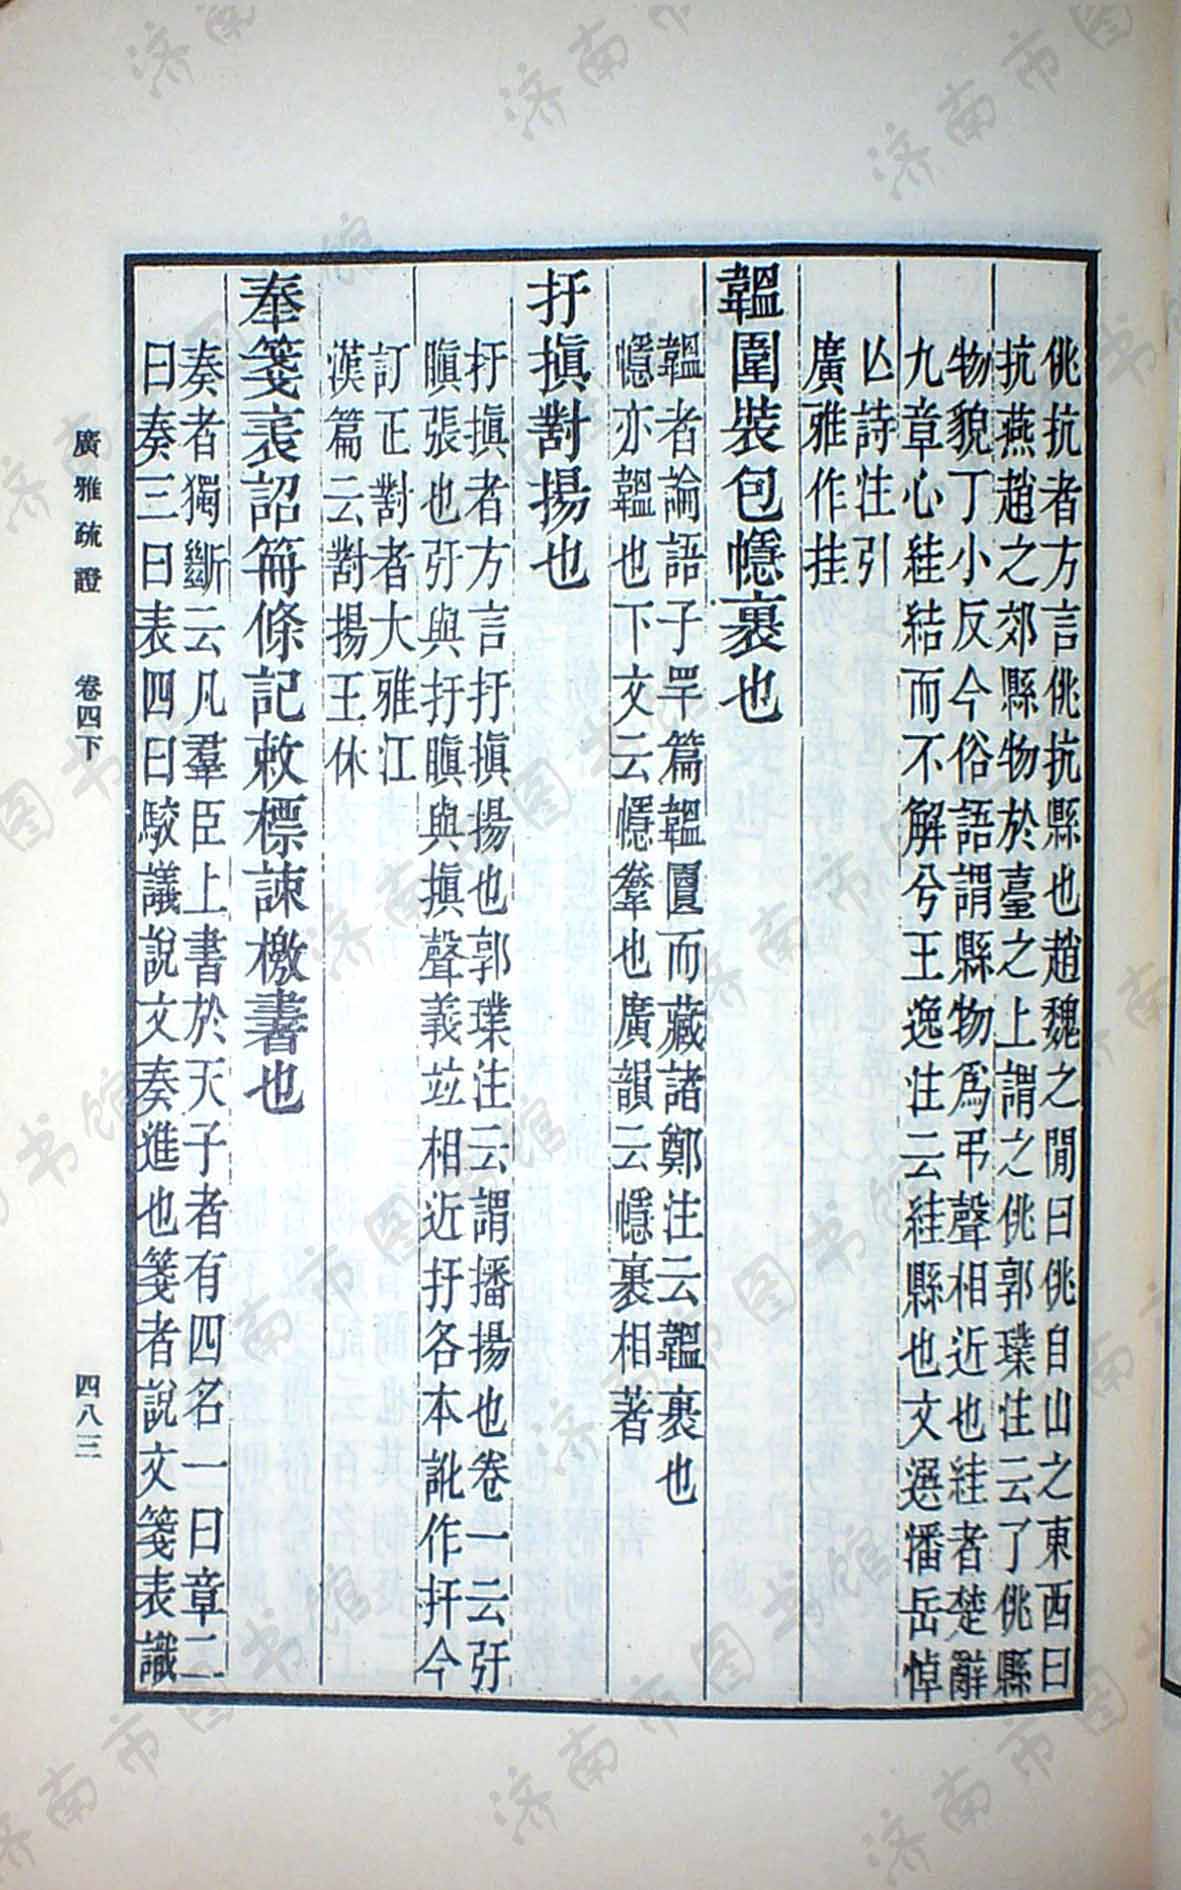 佻抗者方言佻抗縣也趙魏之閒曰佻自山之東西曰
抗燕趙之郊縣物於臺之上謂之佻郭璞注云了佻縣
物貌丁小反今俗語謂縣物爲弔聲相近也絓者楚辭
九章心絓結而不解兮王逸注云絓縣也文選潘岳悼
亾詩注引
廣雅作挂
韞圍裝包㡥裹也
韞者論語子罕篇韞匵而藏諸鄭注云韞裹也
㡥亦韞也下文云㡥㡔也廣韻云㡥裹相著
扜搷對揚也
扜搷者方言扜搷揚也郭璞注云謂播揚也卷一云𢎗
瞋張也𢎗與扜瞋與搷聲義竝相近扜各本訛作扞今
訂正對者大雅江
漢篇云對揚王休
奏箋表詔冊條記敕標諫檄書也
奏者獨斷云凡羣臣上書於天子者有四名一曰章二
曰奏三曰表四曰駮議說文奏進也箋者說文箋表識
廣雅疏證 卷四下 四八三
济南市图书馆